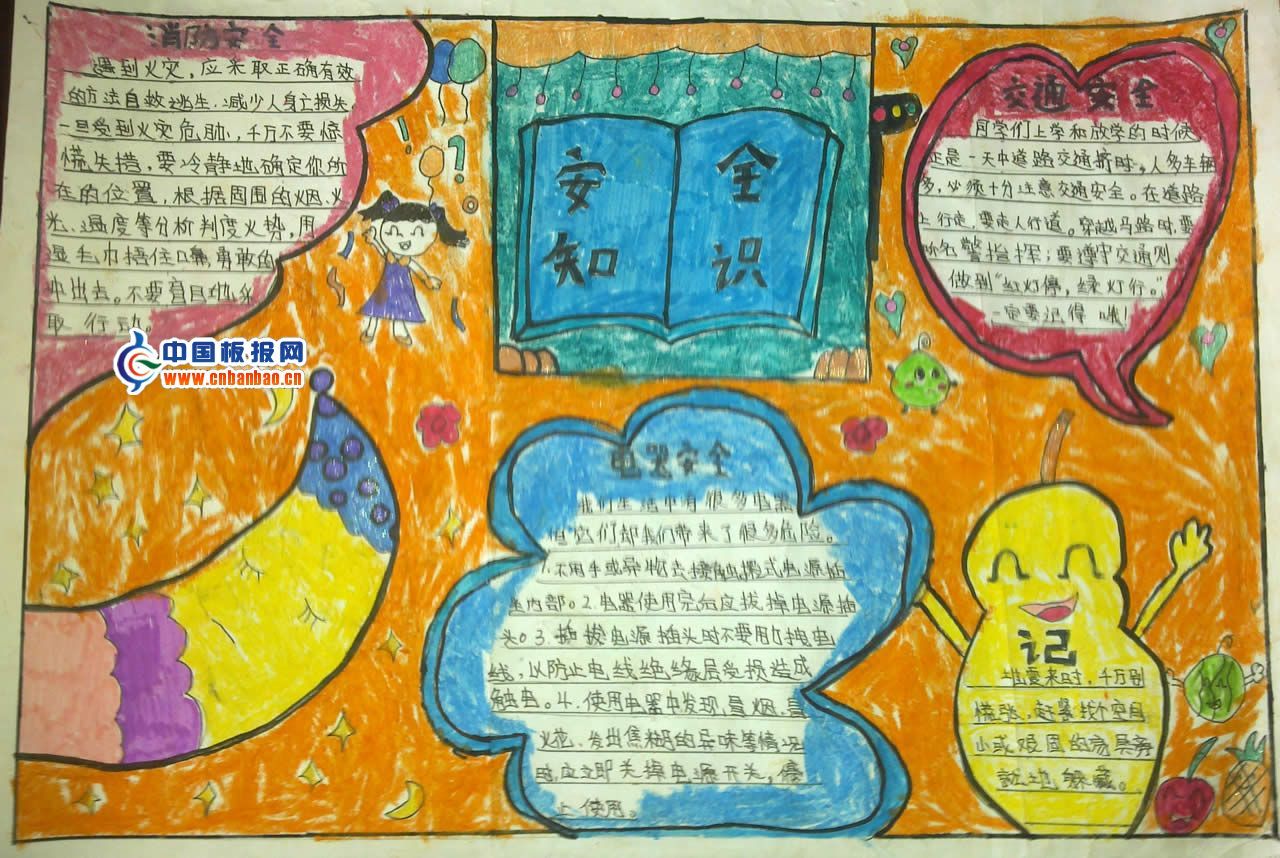 消防安全
遇到火灾，应采取正确有效
的方法自救逃生，减少人身亡损失。
一旦受到火灾危胁，千万不要惊
慌失措，要冷静地确定你所
在的位置，根据周围的烟、火
光、温度等分析判度火势，用
湿毛巾捂住口鼻勇敢的
冲出去。不要盲目地采
取行动。
中国板报网
www.cnbanbao.cn
安全
知识
交通安全
同学们上学和放学的时候
正是一天中道路交通挤时，人多车辆
多，必须十分注意交通安全。在道路
上行走，要走人行道。穿越马路时，要
警指挥；要遵守交通则
做到“红灯停，绿灯行。”
一定要记得哦！
电器安全
我们生活中有很多电器
但它们却我们带来了很多危险。
1.不用手或异物去接触携式电源插
座内部。2.电器使用完后应拔掉电源插
头。3.插拔电源插头时不要用力拽电
线，以防止电线绝缘层受损造成
触电。4.使用电器中发现冒烟、冒
火花、发出焦糊的异味等情况
时，应立即关掉电源开关，停
止使用。
记
地震来时，千万别
慌张，赶紧找个空间
小或艰固的家具旁
就地躲藏。